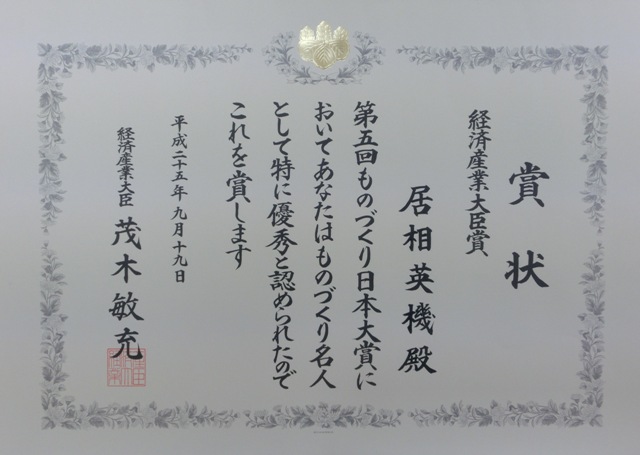 賞状
経済産業大臣賞
居相英機殿
第五回ものづくり日本大賞に
おいてあなたはものづくり名人
として特に優秀と認められたので
これを賞します
平成二十五年九月十九日
経済産業大臣 茂木敏充